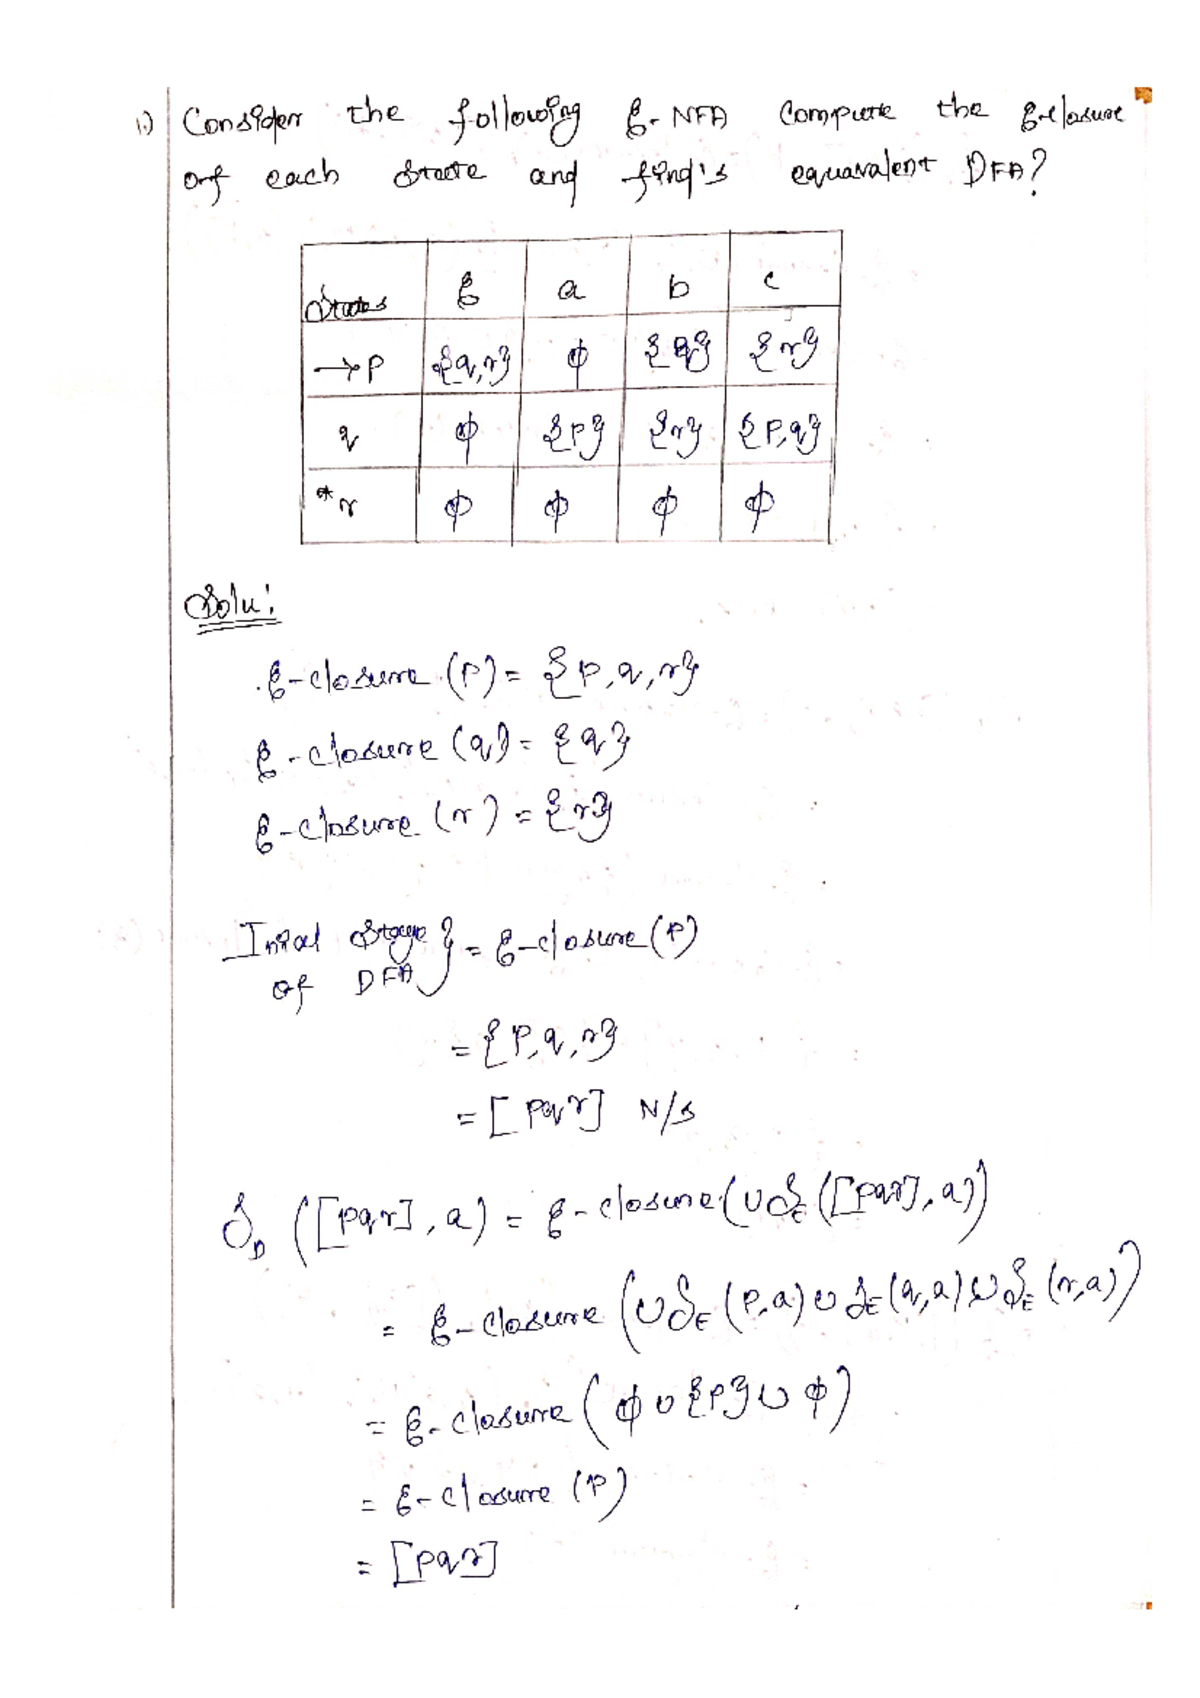 1.) Consider the following ε-NFA compute the ε-closure
of each state and find's equavalent DFA?
States ε a b c
→p {q,r} φ {q} {r}
q φ {p} {r} {p,q}
*r φ φ φ φ
Solu:
ε-closure (p) = {p,q,r}
ε-closure (q) = {q}
ε-closure (r) = {r}
Inial Stage } = ε-closure (p)
of DFA
= {p,q,r}
= [pqr] N/s
δD ([pqr], a) = ε-closure (∪δE ([pqr], a))
= ε-closure (∪δE (p,a) ∪ δE (q,a) ∪ δE (r,a))
= ε-closure (φ ∪ {p} ∪ φ)
= ε-closure (p)
= [pqr]